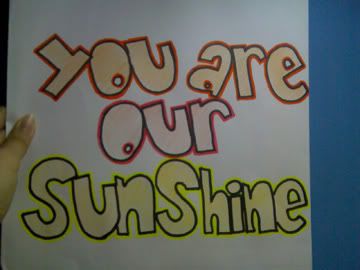 you are
our
SunShine